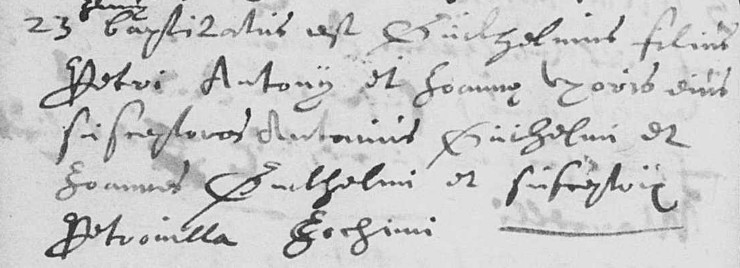 23 baptizatus est Guilhelmus filius
Petri Antonij et Joannę Vxoris eius
susceptores Antonius Guilhelmi et
Joannes Guilhelmi et susceptrix
Petronilla Jochimi